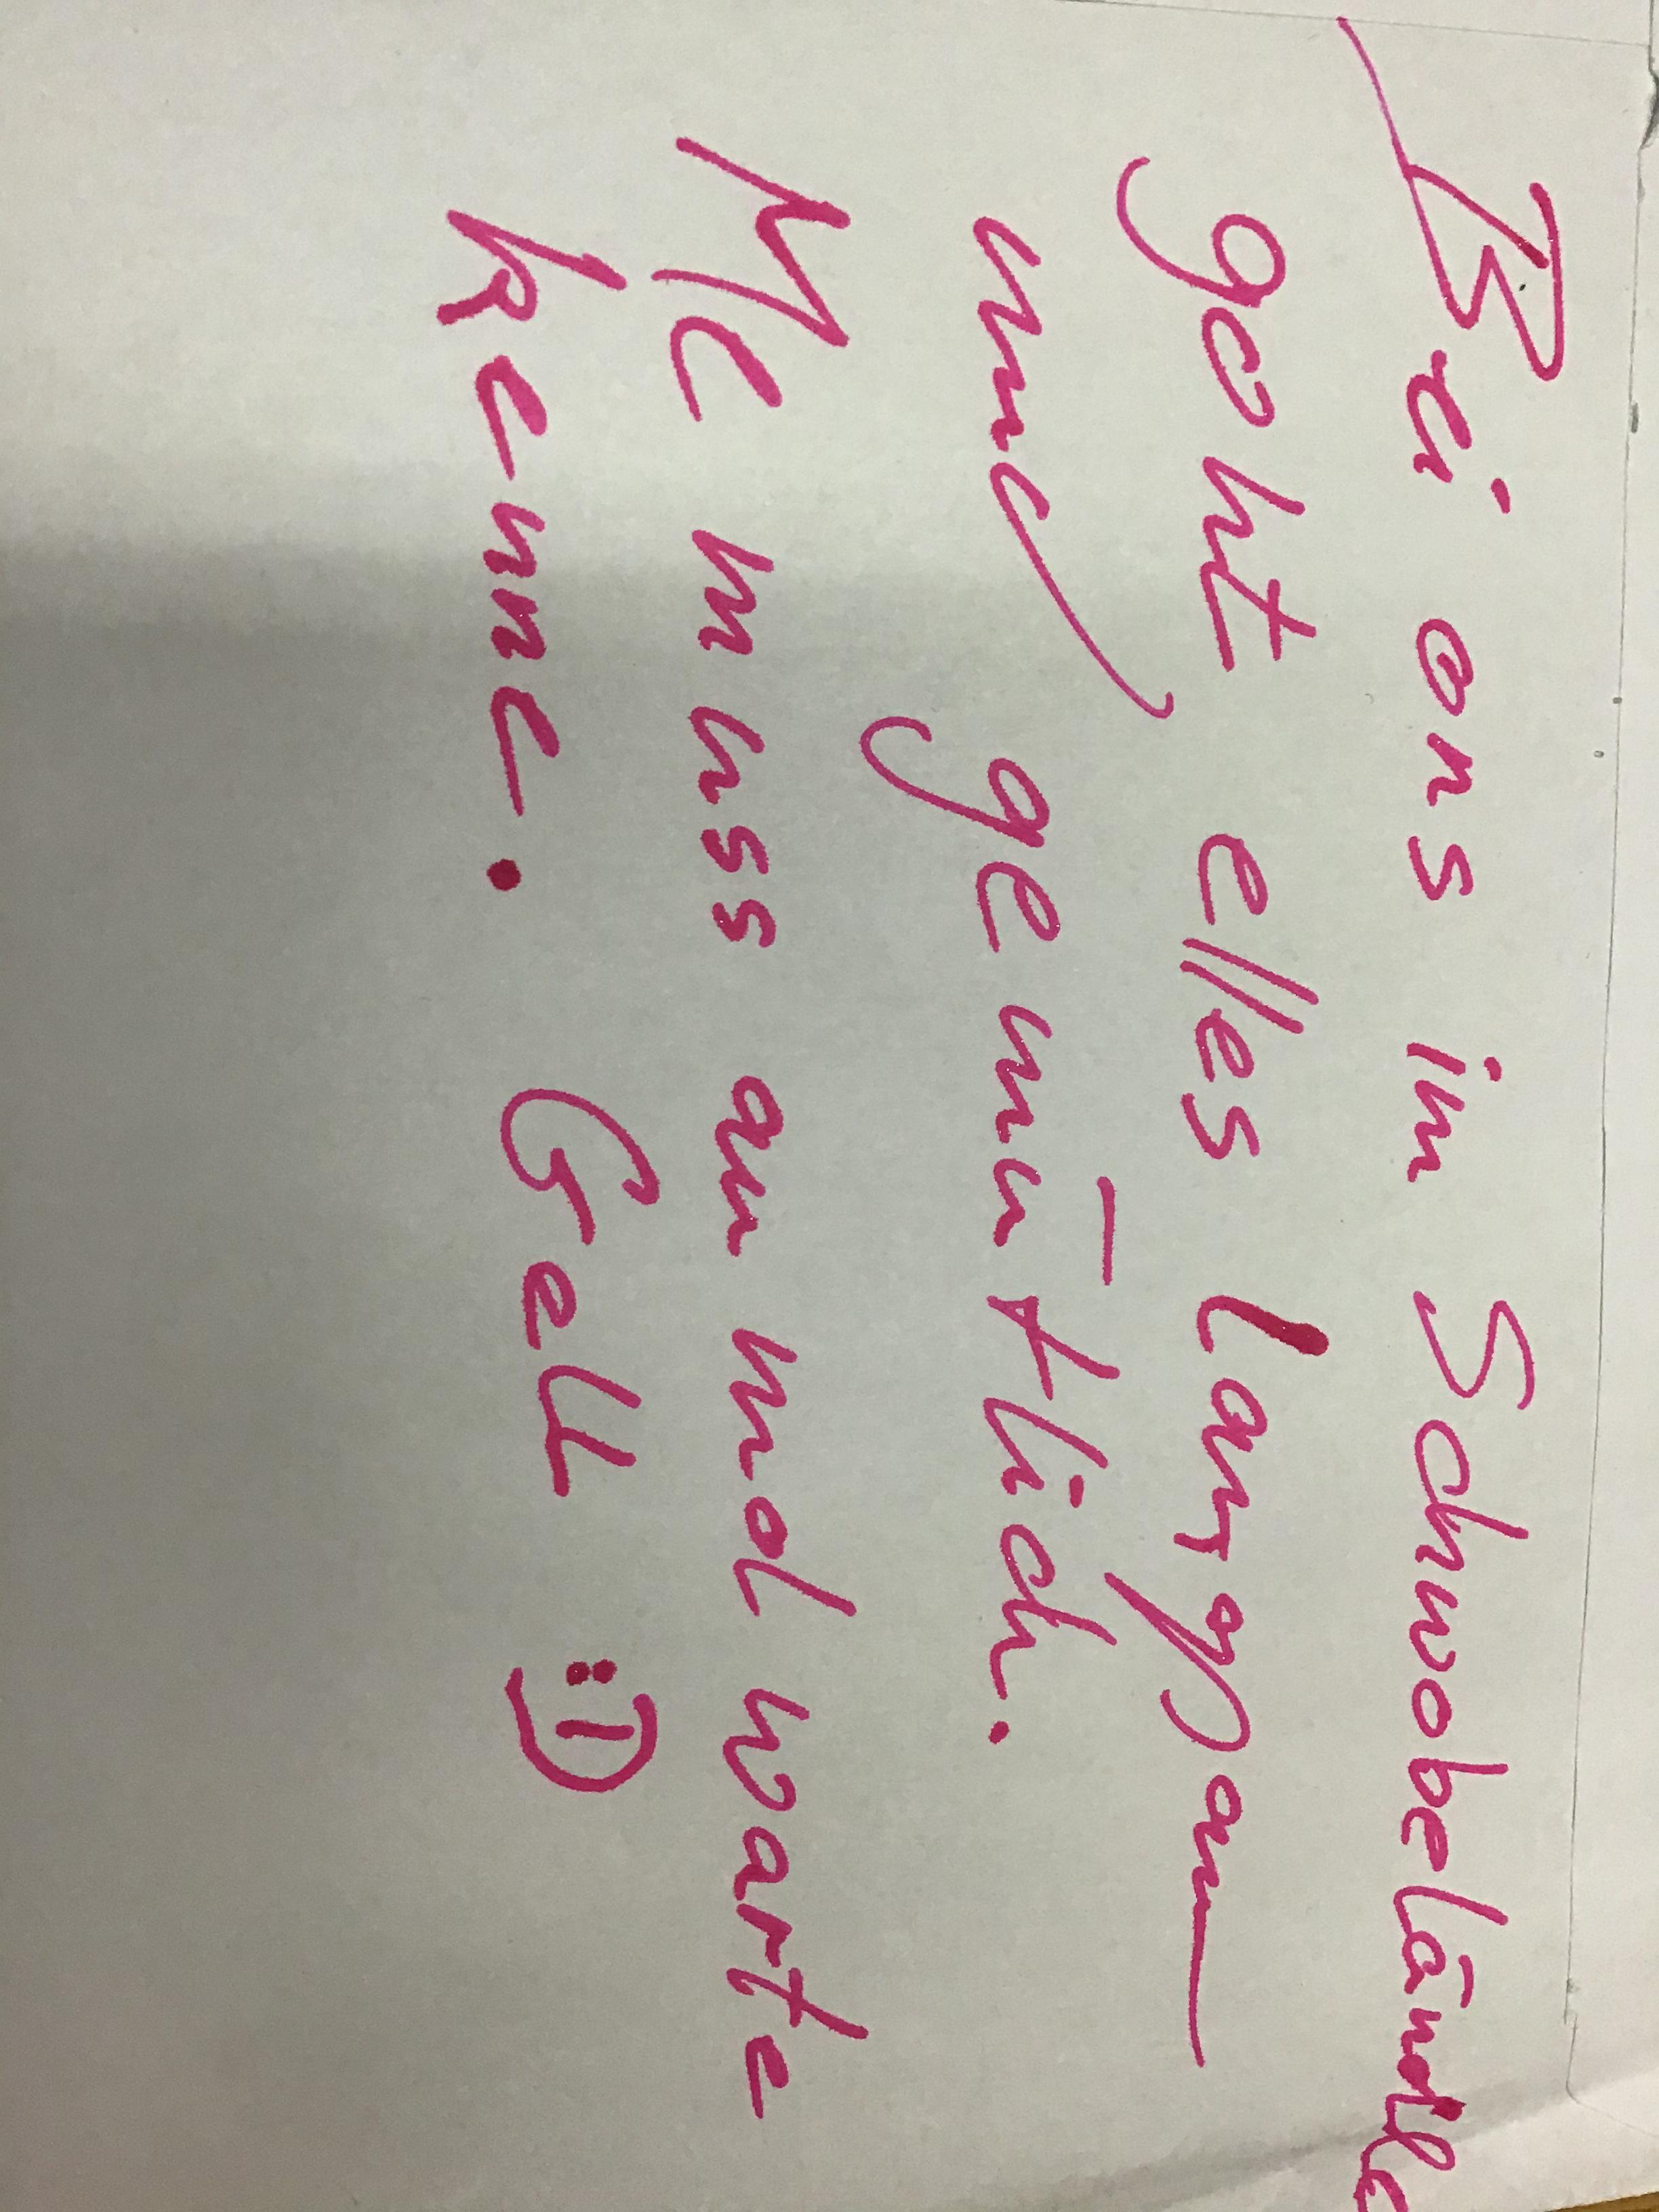 Bei ons im Schwobeländle
goht elles langsam
und gemütlich.
Me muss au mol warte
kenne. Gell :)